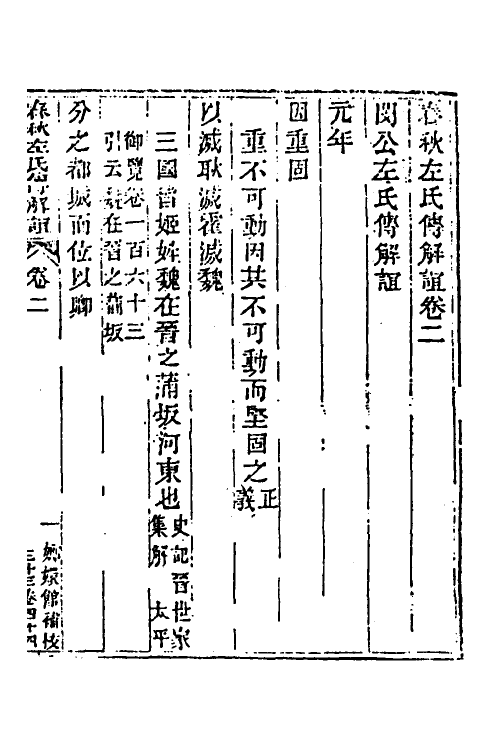 春秋左氏傳解誼卷二
閔公左氏傳解誼
元年
因重固
重不可動因其不可動而堅固之正義
以滅耿滅霍滅魏
三國皆姬姓魏在晉之蒲坂河東也史記晉世家集解 太平
御覽卷一百六十三
引云魏在晉之蒲坂
分之都城而位以卿
春秋左氏傳解誼 卷二 一 嫏嬛館補校